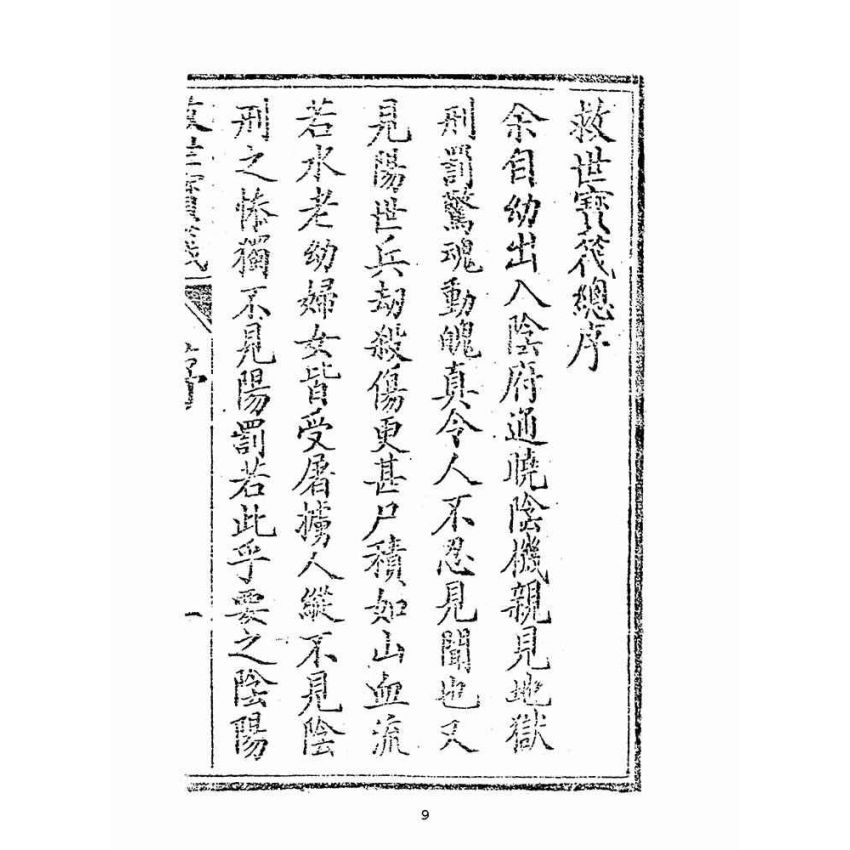 救世寶筏總序
余自幼出入陰府通曉陰機親見地獄
刑罰驚魂動魄真令人不忍見聞也又
見陽世兵劫殺傷更甚尸積如山血流
若水老幼婦女皆受屠擄人縱不見陰
刑之慘獨不見陽罰若此乎要之陰陽
救世寶筏
序
一
9